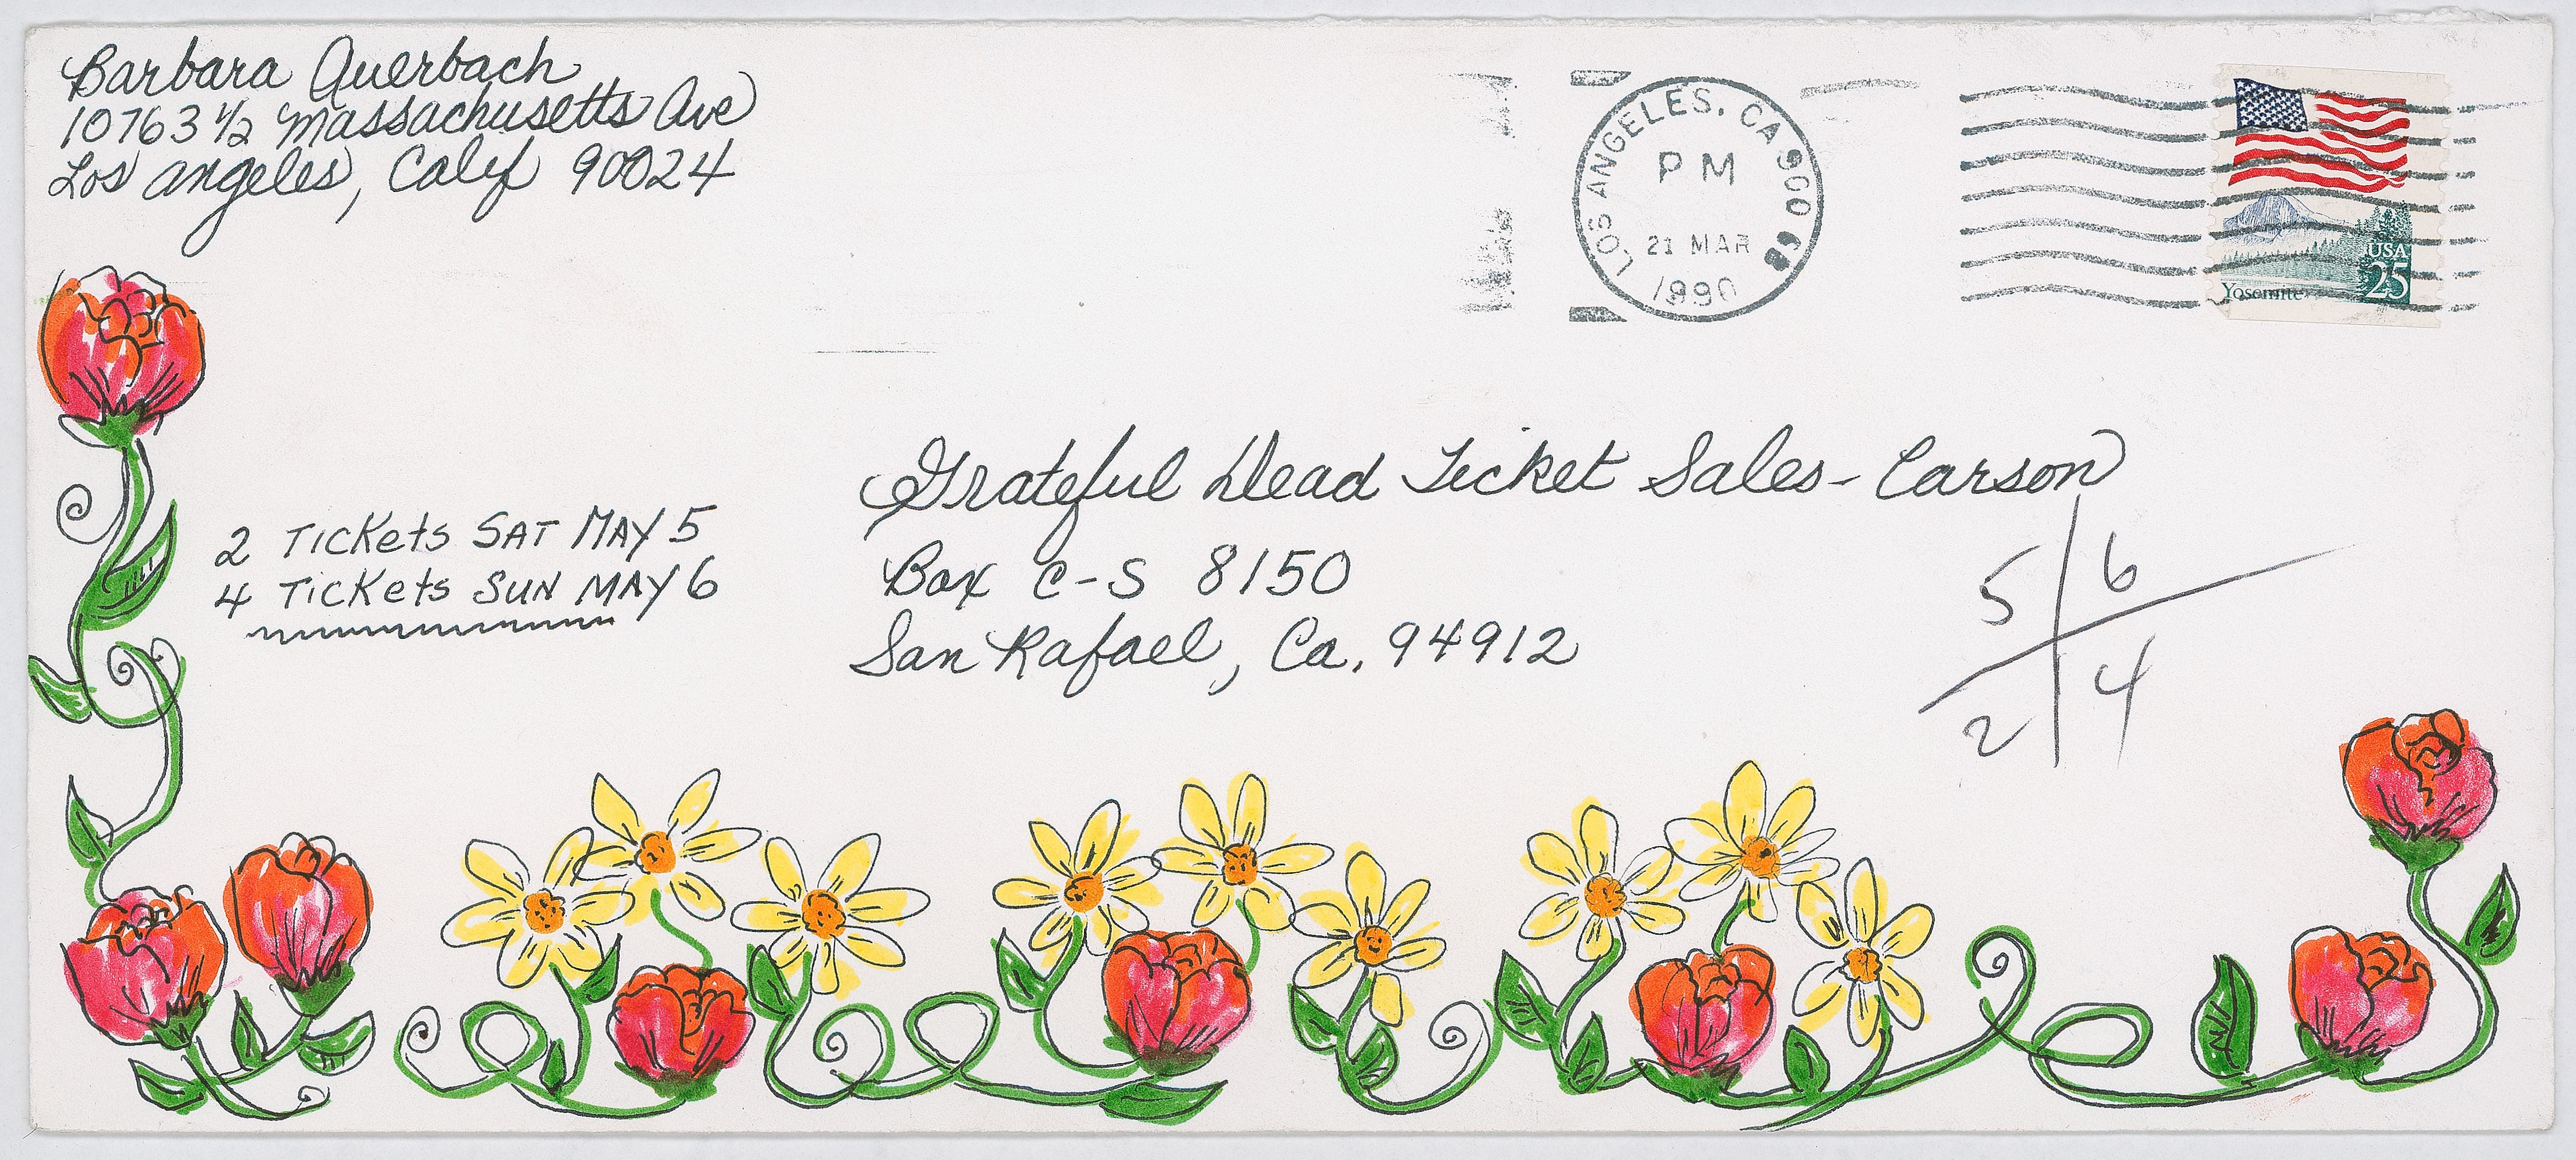 Barbara Auerbach
10763 1/2 Massachusetts Ave
Los Angeles, Calif 90024
LOS ANGELES, CA 900
PM
21 MAR
1990
USA
25
Yosemite
Grateful Dead Ticket Sales - Carson
Box C-S 8150
San Rafael, Ca. 94912
2 TICKETS SAT MAY 5
4 TICKETS SUN MAY 6
5 6
2 4